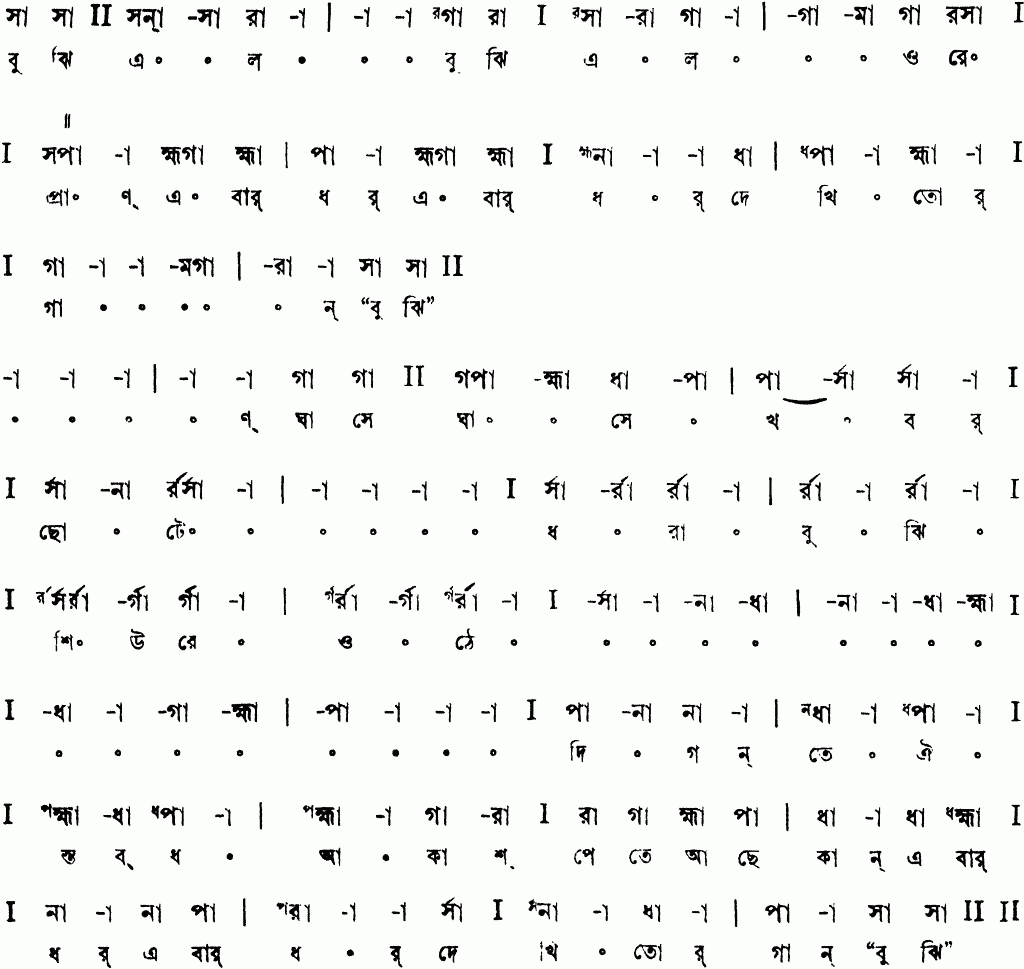 সা সা II সন্া -সা রা -া | -া -া রগা রা I রসা -রা গা -া | -গা -মা গা রসা I
বু ঝি এ॰ ॰ ল ॰ ॰ ॰ বু ঝি এ ॰ ল ॰ ॰ ॰ ও রে॰
॥
I সপা -া হ্মগা হ্মা | পা -া হ্মগা হ্মা I হ্মনা -া -া ধা | ধপা -া হ্মা -া I
প্রা॰ ণ্ এ॰ বার্ ধ র্ এ॰ বার্ ধ ॰ র্ দে খি ॰ তো র্
I গা -া -া -মগা | -রা -া সা সা II
গা ॰ ॰ ॰॰ ॰ ন্ “বু ঝি”
-া -া -া | -া -া গা গা II গপা -হ্মা ধা -পা | পা -র্সা র্সা -া I
॰ ॰ ॰ ॰ ণ্ ঘা সে ঘা॰ ॰ সে ॰ খ ॰ ব র্
I র্সা -না র্রর্সা -া | -া -া -া -া I র্সা -র্রা র্রা -া | র্রা -া র্রা -া I
ছো ॰ টে॰ ॰ ॰ ॰ ॰ ॰ ধ ॰ রা ॰ বু ॰ ঝি ॰
I র্রর্সর্রা -র্গা র্গা -া | র্গর্রা -র্গা র্গর্রা -া I -র্সা -া -না -ধা | -না -া -ধা -হ্মা I
শি॰ উ রে ॰ ও ॰ ঠে ॰ ॰ ॰ ॰ ॰ ॰ ॰ ॰ ॰
I -ধা -া -গা -হ্মা | -পা -া -া -া I পা -না না -া | নধা -া ধপা -া I
॰ ॰ ॰ ॰ ॰ ॰ ॰ ॰ দি ॰ গ ন্ তে ॰ ঐ ॰
I পহ্মা -ধা ধপা -া | পহ্মা -া গা -রা I রা গা হ্মা পা | ধা -া ধা ধহ্মা I
স্ত ব্ ধ ॰ আ ॰ কা শ্ পে তে আ ছে কা ন্ এ বার্
I না -া না পা | পরা -া -া র্সা I ধনা -া ধা -া | পা -া সা সা II II
ধ র্ এ বার্ ধ ॰ র্ দে খি ॰ তো র্ গা ন্ “বু ঝি”